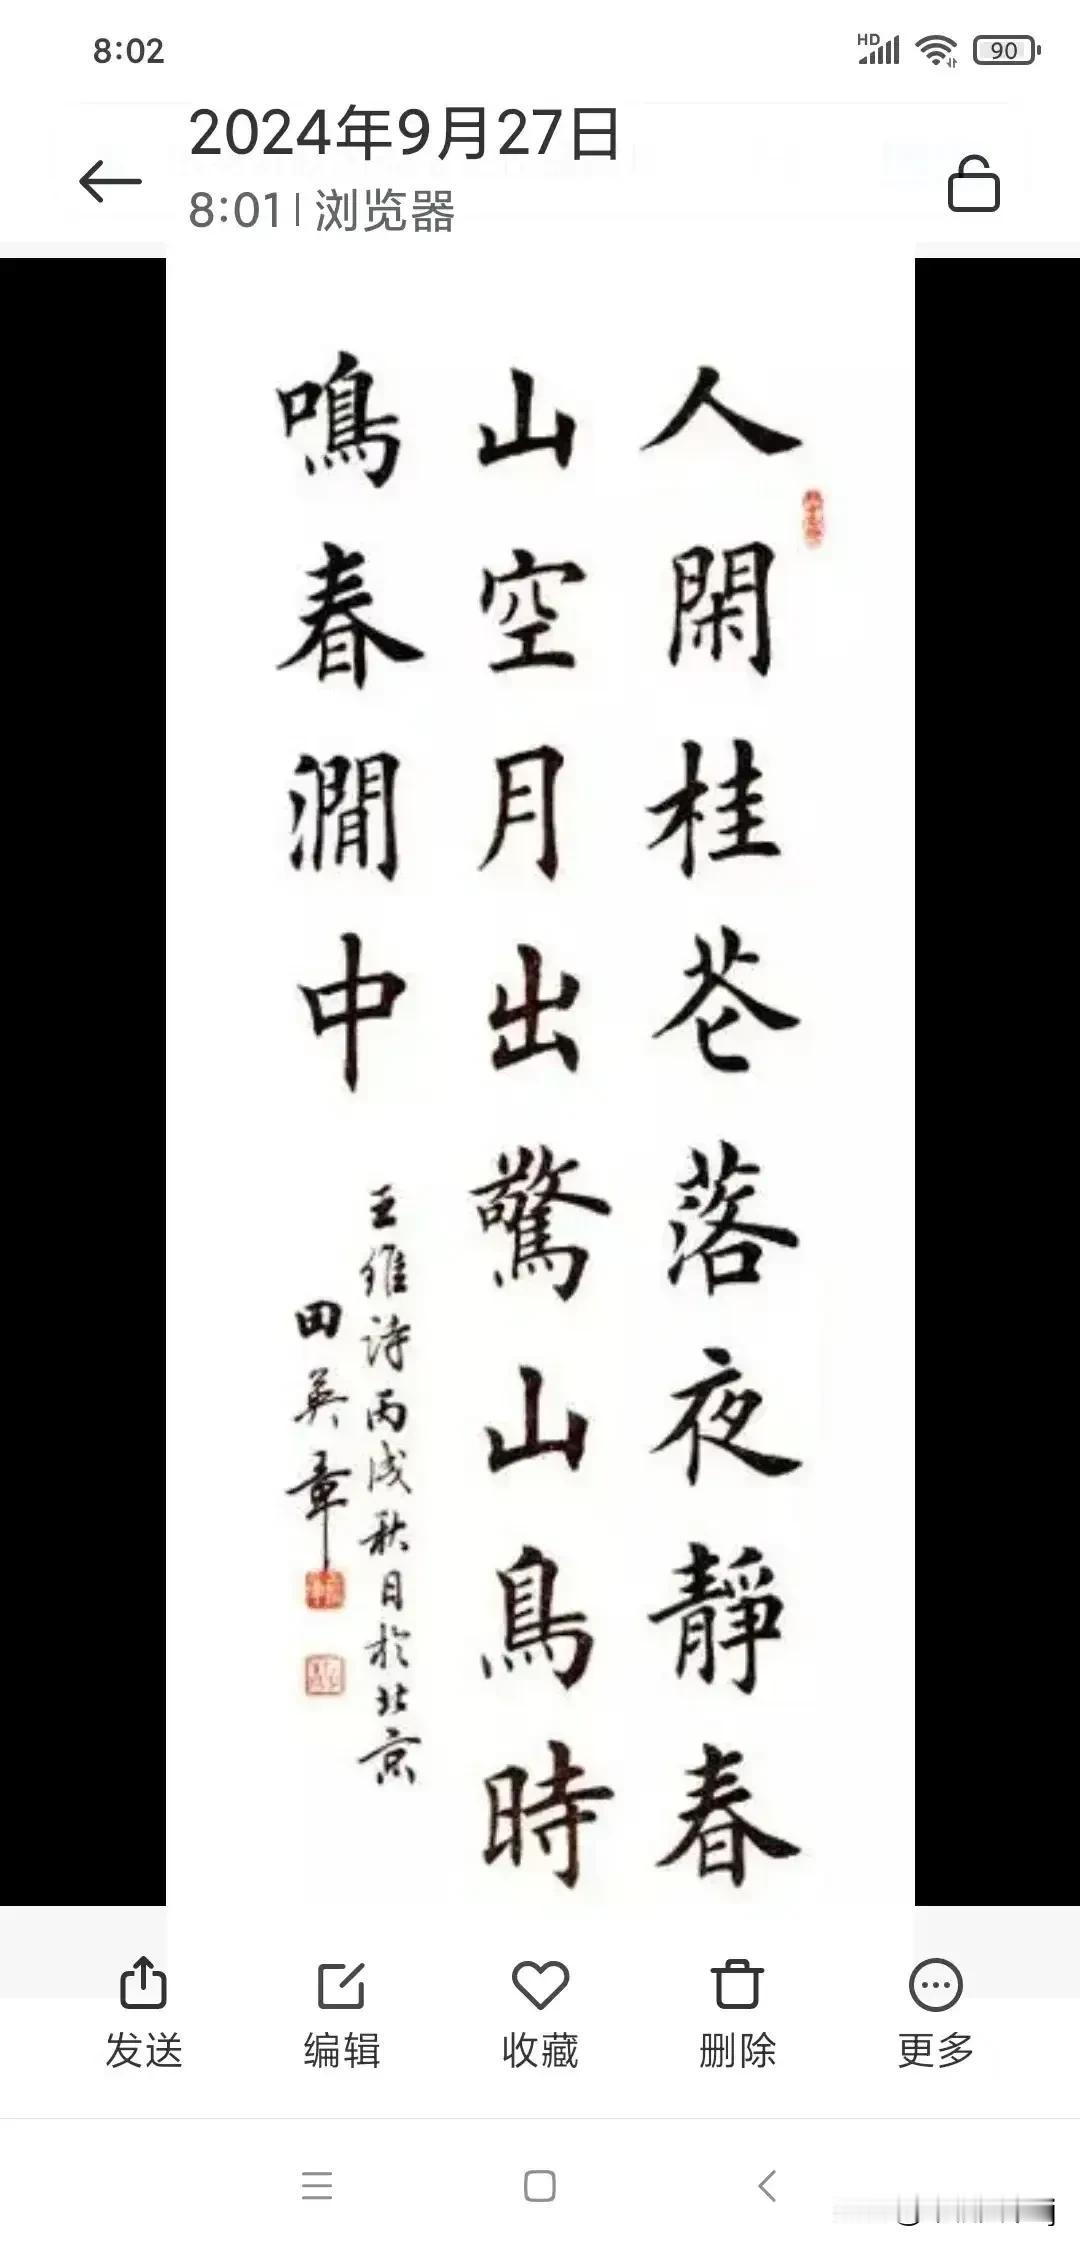 8:02
HD
90
2024年9月27日
8:01 | 浏览器
人閑桂花落夜靜春
山空月出驚山鳥時
鳴春澗中
王維诗丙戌秋月於北京
田英章
发送
编辑
收藏
删除
更多